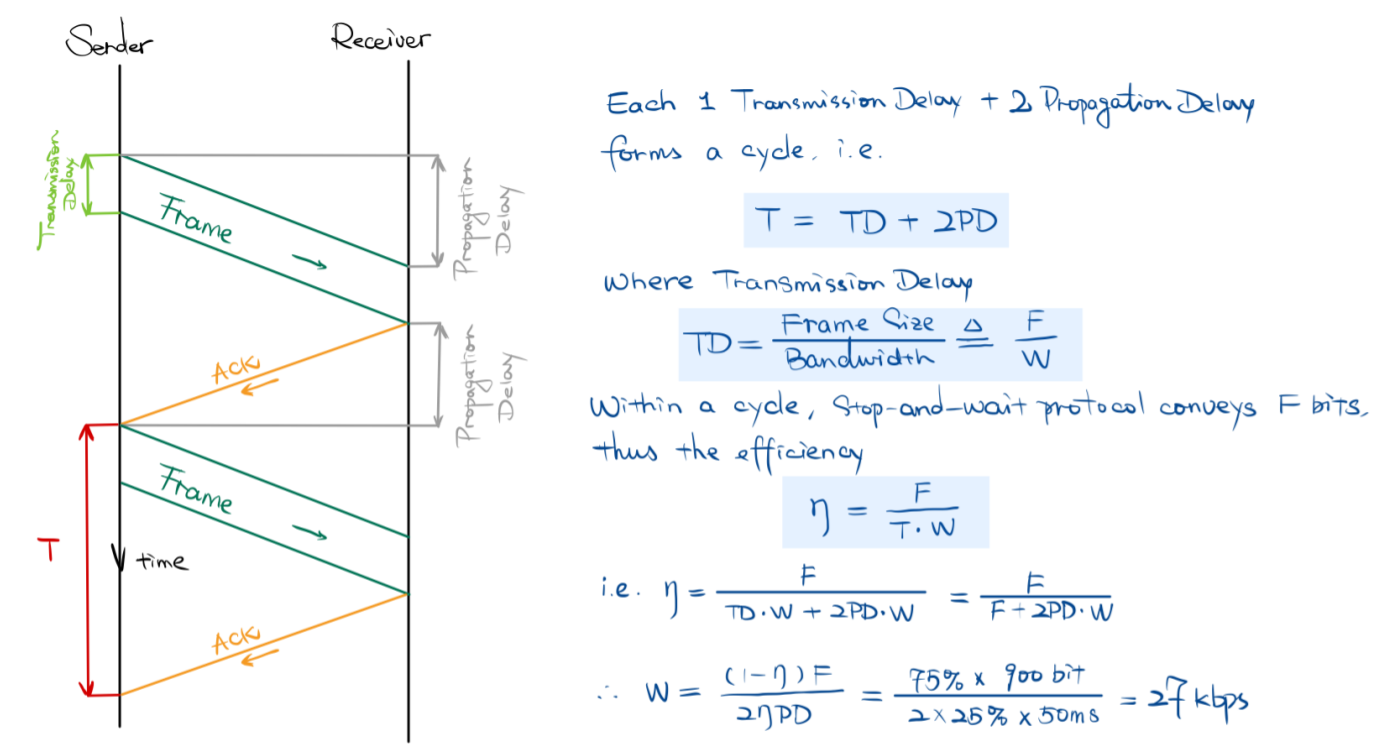 Sender
Receiver
Transmission
Delay
Frame
→
Propagation
Delay
Ack
←
Propagation
Delay
Frame
→
T
time
Ack
←
Each 1 Transmission Delay + 2 Propagation Delay
forms a cycle, i.e.
T = TD + 2PD
where Transmission Delay
TD = Frame Size / Bandwidth ≜ F / W
Within a cycle, Stop-and-wait protocol conveys F bits,
thus the efficiency
η = F / T·W
i.e. η = F / TD·W + 2PD·W = F / F+2PD·W
∴ W = (1-η)F / 2ηPD = 75% × 900 bit / 2×25% × 50ms = 27 kbps